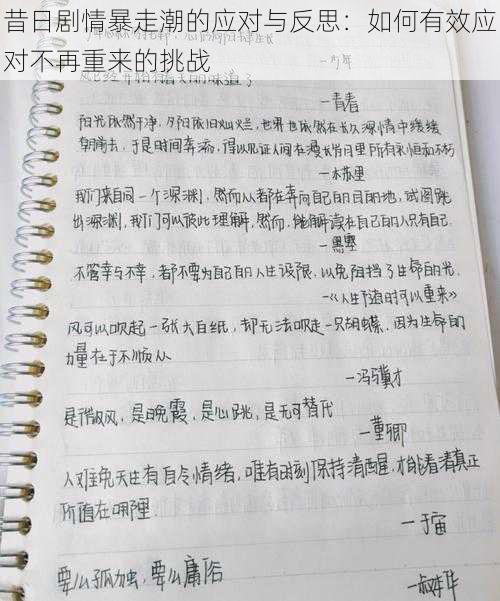 昔日剧情暴走潮的应对与反思：如何有效应
对不再重来的挑战
一青春
阳光依然干净，夕阳依旧灿烂，世界也依然在长久深情中缓缓
朝前去，于是时间奔流，得以见证人间在漫长岁月里所有永恒而不朽
一木苏里
我们来自同一个深渊，然而从都在奔向自己的目的地，试图跳
出深渊，我们可以彼此理解，然而，能解读在自己的人只有自己
一黑塞
不管幸与不幸，都不要为自己的人生设限，以免阻挡了生命的光
一《人生何时可以重来》
风可以吹起一张大白纸，却无法吹走一只蝴蝶，因为生命的
力量在于不顺从
一冯骥才
是微风，是晚霞，是心跳，是无可替代
一董卿
人难免天生有自怜情绪，唯有时刻保持清醒，才能看清真正
价值在哪理
一于宙
要么孤独，要么庸俗
一叔本华